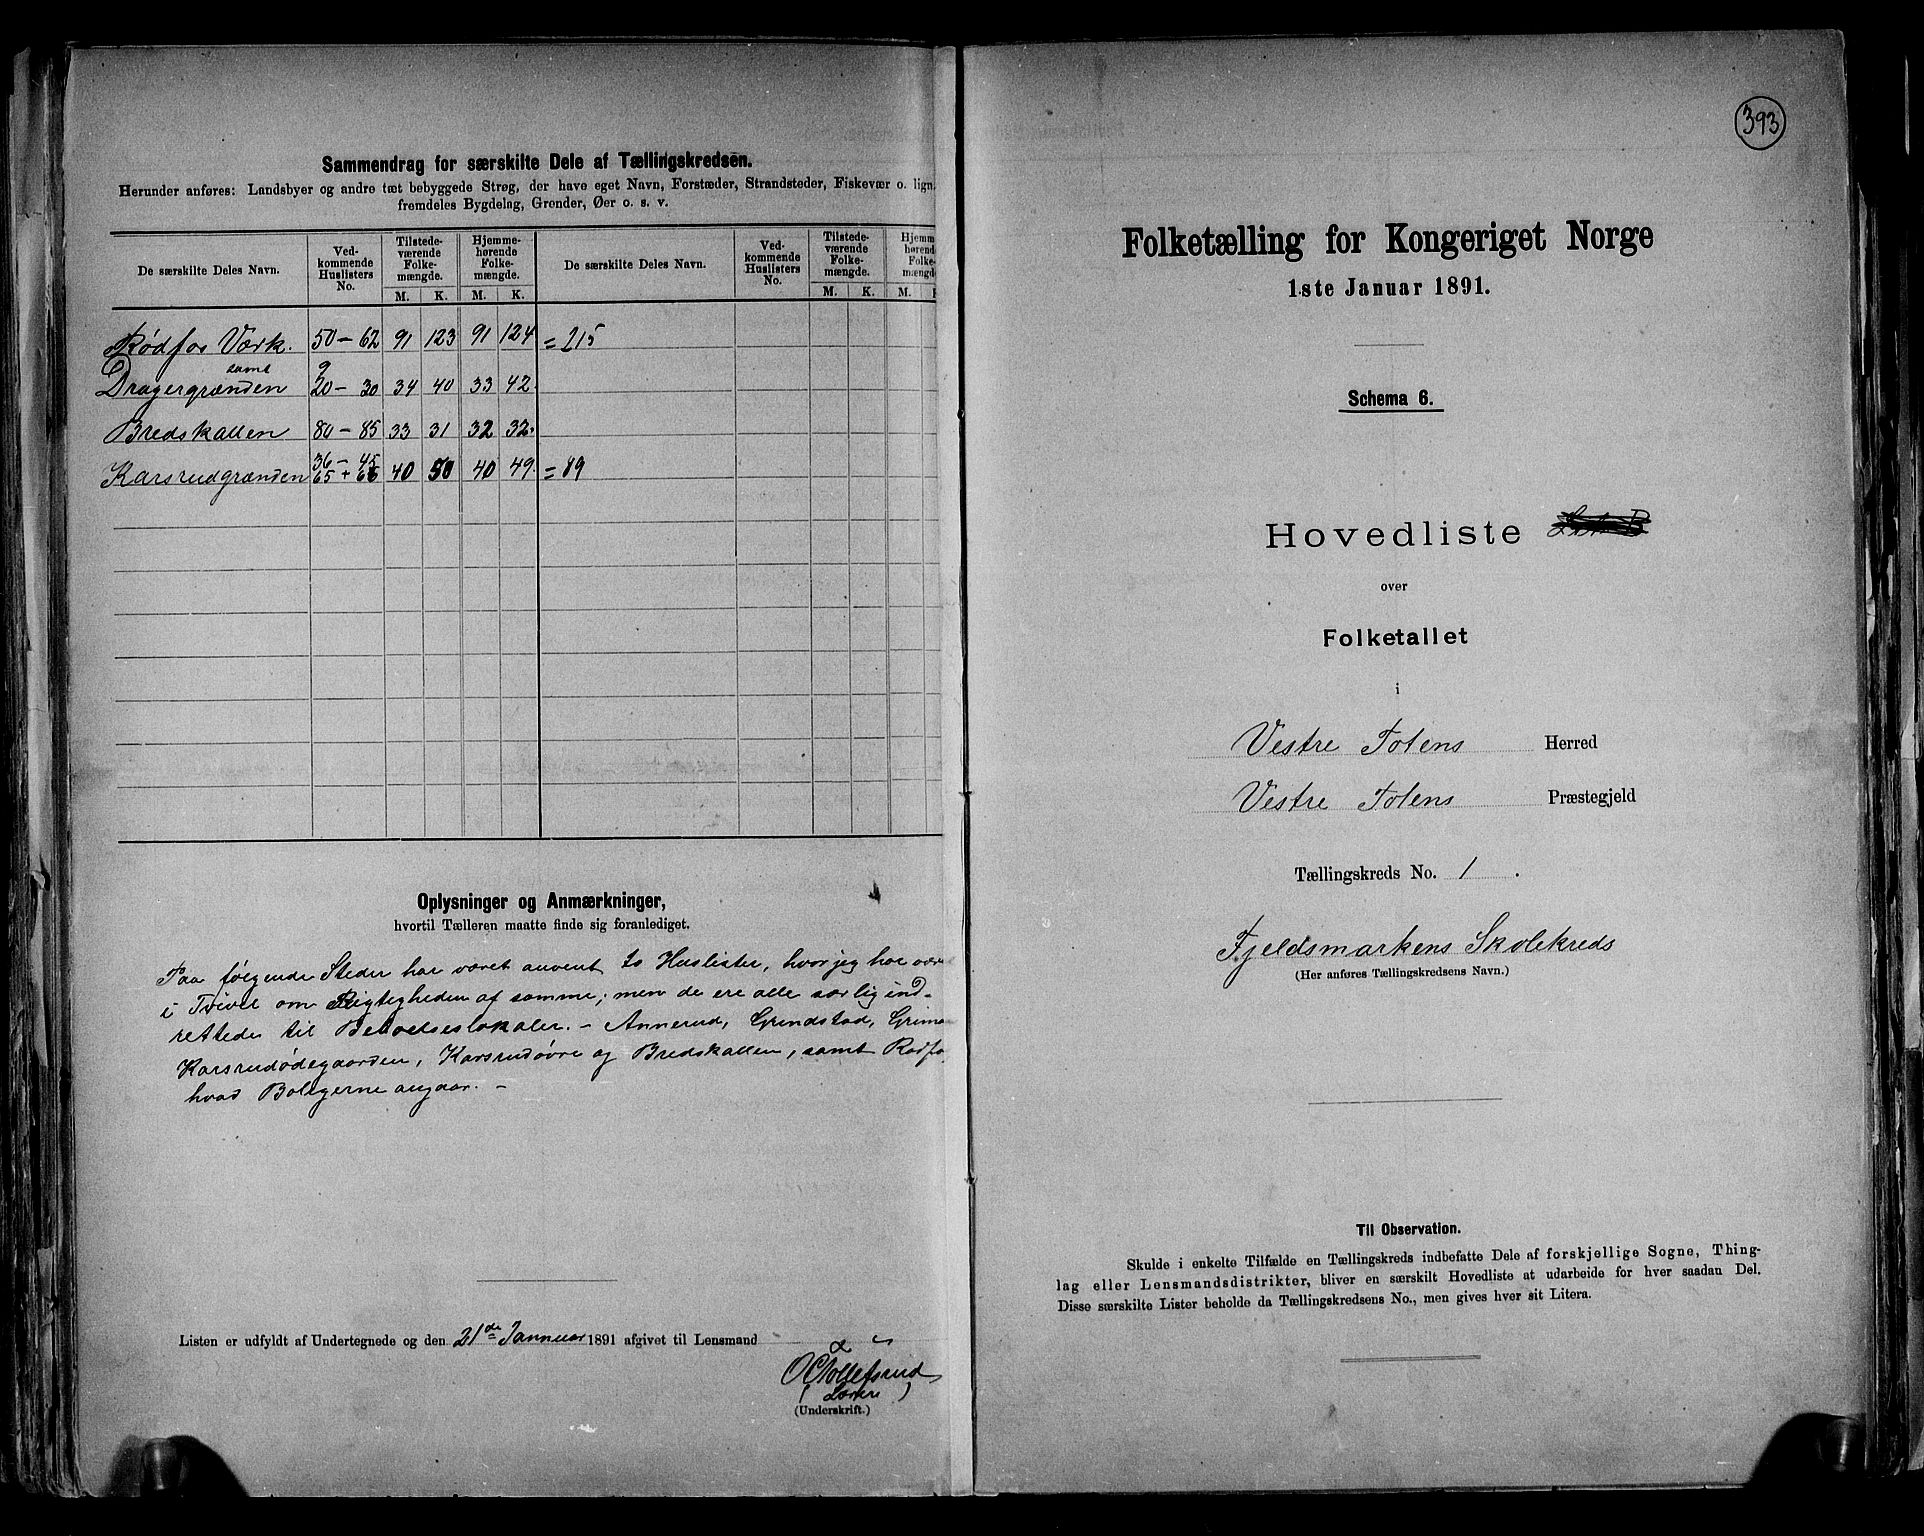 Sammendrag for særskilte Dele af Tællingskredsen.
Herunder anføres: Landsbyer og andre tæt bebyggede Strøg, der have eget Navn, Forstæder, Strandsteder, Fiskevær o. lign.
fremdeles Bygdelag, Grender, Øer o. s. v.
De særskilte Deles Navn. Ved-kommende Huslisters No. Tilstede-værende Folke-mængde. Hjemme-hørende Folke-mængde. De særskilte Deles Navn. Ved-kommende Huslisters No. Tilstede-værende Folke-mængde. Hjemm hørend Folke mængd
M. K. M. K. M. K. M.
Rødfos Værk. 50 - 62 91 123 91 124 = 215
samt 9
Dragergrænden 20 - 30 34 40 33 42.
Bredskallen 80 - 85 33 31 32 32.
36 - 45
Karsrudgrænden 65 + 66 40 50 40 49. = 89
Oplysninger og Anmærkninger,
hvortil Tælleren maatte finde sig foranlediget.
Paa følgende Steder har været anvent to Huslister, hvor jeg har være
i Tvivl om Rigtigheden af samme; men de ere alle særlig ind-
rettede til Beboelseslokaler. - Annerud, Grindstad,
Karsrudødegaarden, Karsrudøvre og Bredskallen, samt Rødfo
hvad Boligerne angaar. -
Listen er udfyldt af Undertegnede og den 21de Januar 1891 afgivet til Lensmand
Tollefsrud
( Lærer )
(Underskrift.)
393
Folketælling for Kongeriget Norge
1ste Januar 1891.
Schema 6.
Hovedliste
over
Folketallet
i
Vestre Totens Herred
Vestre Totens Præstegjeld
Tællingskreds No. 1.
Fjeldsmarkens Skolekreds
(Her anføres Tællingskredsens Navn.)
Til Observation.
Skulde i enkelte Tilfælde en Tællingskreds indbefatte Dele af forskjellige Sogne, Thing-
lag eller Lensmandsdistrikter, bliver en særskilt Hovedliste at udarbeide for hver saadan Del.
Disse særskilte Lister beholde da Tællingskredsens No., men gives hver sit Litera.